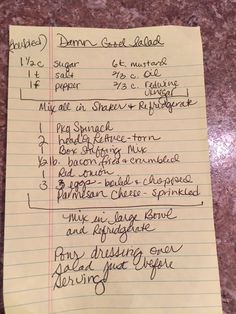 (doubled) Damn Good Salad
1 1/2 c sugar 6 t. mustard
1 t salt 2/3 c. oil
1 t pepper 2/3 c. Redwine Vinegar
Mix all in Shaker & Refridgerate
1 Pkg Spinach
2 heads lettuce - torn
1 Box Stuffing Mix
lb. bacon fried & crumbled
1 Red onion
3 eggs - boiled & chopped
Parmesan Cheese - Sprinkled
Mix in large Bowl
and Refridgerate
Pour dressing over
Salad just before
Serving